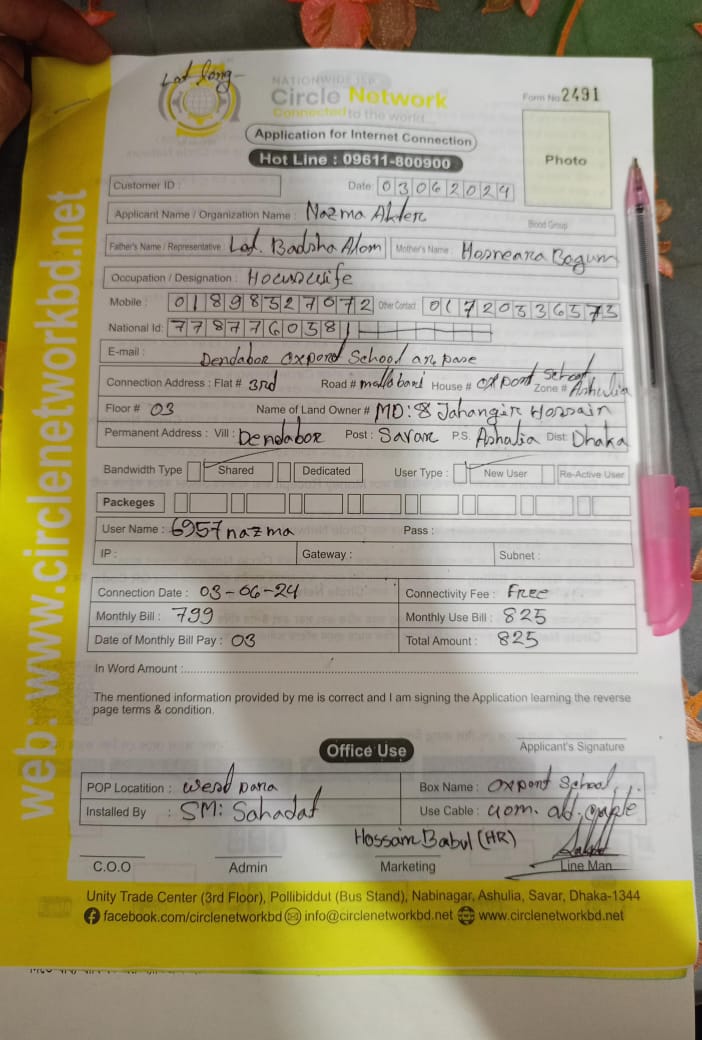 Lat long-
NATIONWIDE ISP
Circle Network
Connected to the world...
Form No 2491
Application for Internet Connection
Hot Line : 09611-800900
Photo
Customer ID :
Date: 03062024
Applicant Name / Organization Name : Nazma Akter
Blood Group
Father's Name / Representative : Lat. Badsha Alom Mother's Name : Hosneara Begum
Occupation / Designation : Housewife
Mobile : 01898327072 Other Contact 01720336373
National Id: 7787760381
E-mail :
Dendabor oxpord School ar pase
Connection Address : Flat # 3rd Road # House # oxpord School Zone # Ashulia
Floor # 03 Name of Land Owner # MD: Jahangir Hossain
Permanent Address : Vill : Dendabor Post : Savar P.S. Ashulia Dist: Dhaka
Bandwidth Type Shared Dedicated User Type : New User Re-Active User
Packeges
User Name : 6957nazma Pass :
IP : Gateway : Subnet :
Connection Date : 03-06-24 Connectivity Fee : Free
Monthly Bill : 799 Monthly Use Bill : 825
Date of Monthly Bill Pay : 03 Total Amount : 825
In Word Amount :
The mentioned information provided by me is correct and I am signing the Application learning the reverse
page terms & condition.
Applicant's Signature
Office Use
POP Locatition : West para Box Name : oxpord School
Installed By : SM: Sahadat Use Cable :
Hossain Babul (HR)
C.O.O Admin Marketing Line Man
Unity Trade Center (3rd Floor), Pollibiddut (Bus Stand), Nabinagar, Ashulia, Savar, Dhaka-1344
facebook.com/circlenetworkbd info@circlenetworkbd.net www.circlenetworkbd.net
web: www.circlenetworkbd.net